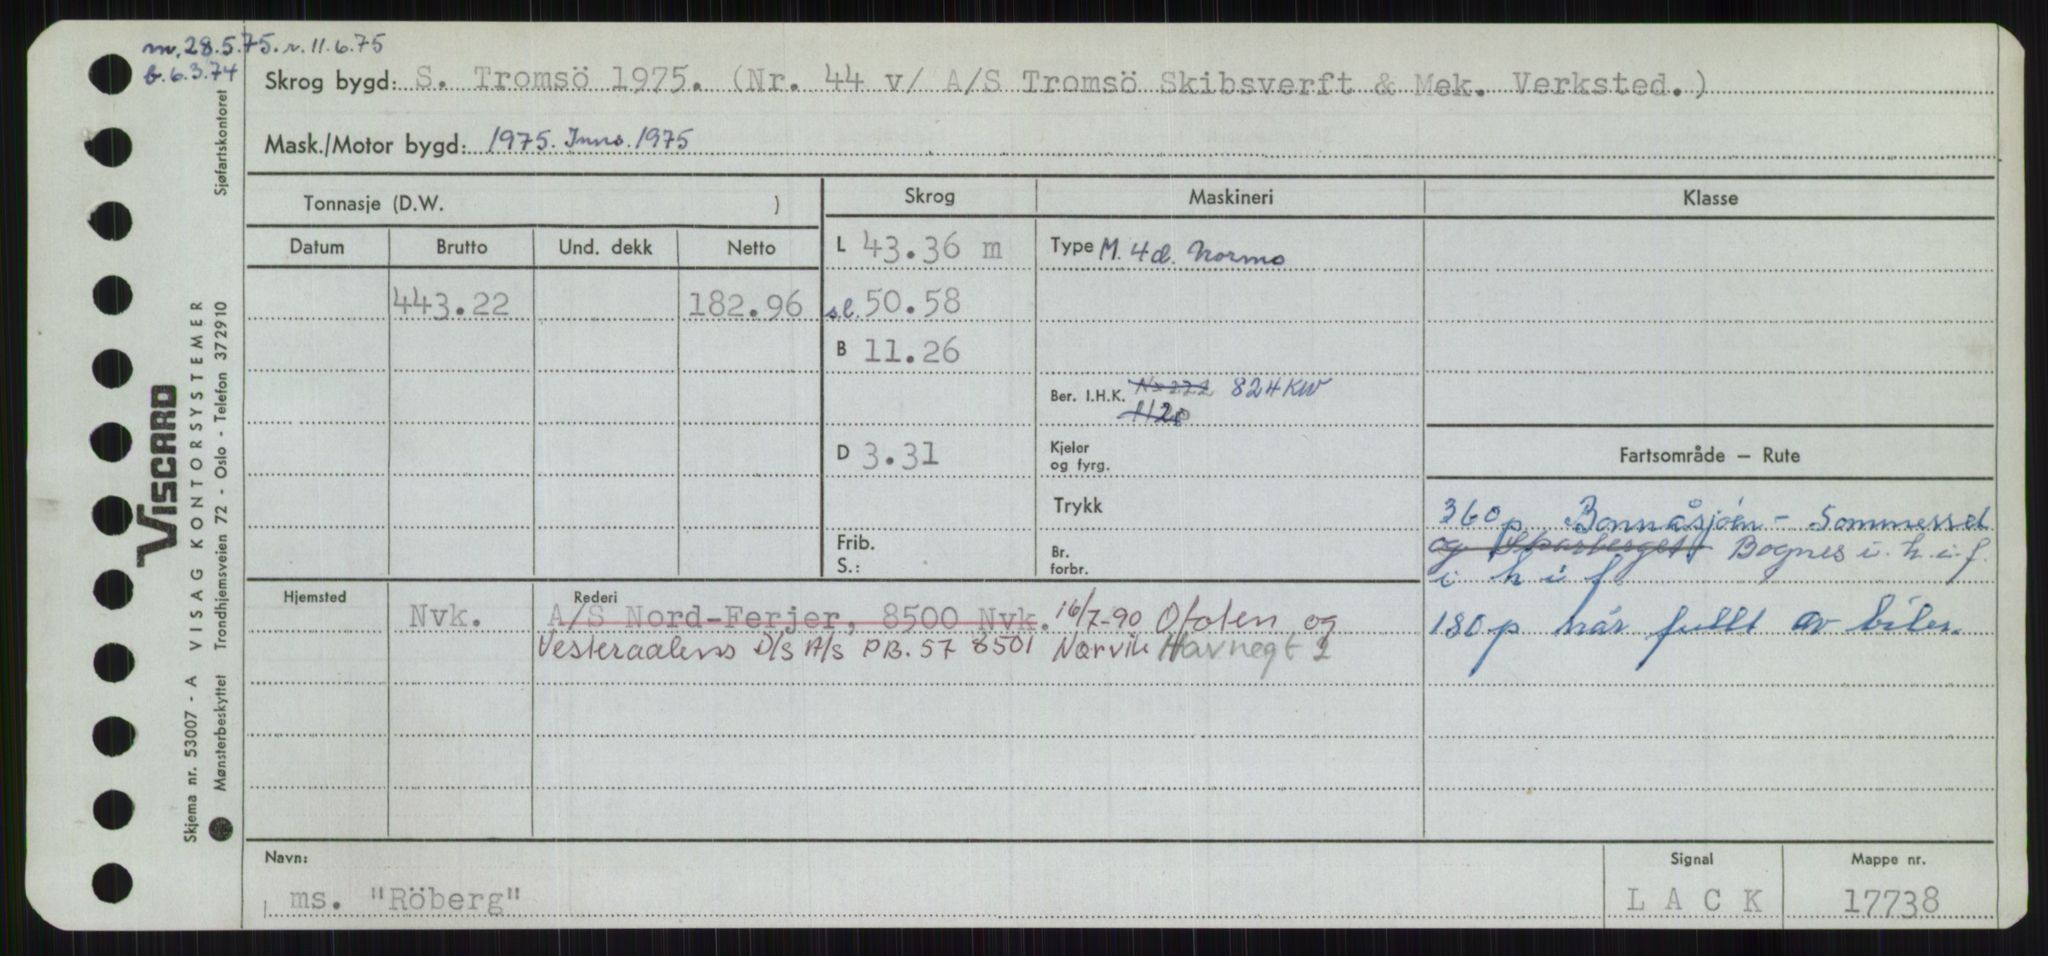 m. 28.5.75. r. 11.6.75
b. 6.3.74
Skrog bygd: S. Tromsö 1975. (Nr. 44 v/ A/S Tromsö Skibsverft & Mek. Verksted.)
Mask./Motor bygd: 1975. Inns. 1975
Sjøfartskontoret
Tonnasje (D.W. )
Skrog
Maskineri
Klasse
Datum Brutto Und. dekk Netto
L 43.36 m
Type M. 4d. Normo
443.22 182.96
s.l. 50.58
B 11.26
Ber. I.H.K. 824 KW
1120
D 3.31
Kjeler
og fyrg.
Fartsområde — Rute
Trykk
360 p Bonnåsjöen - Sommerset
Frib.
S.:
Br.
forbr.
og Sparberget Bognes i. h. i. f.
i h i f.
Hjemsted
Rederi
Nvk.
A/S Nord-Ferjer, 8500 Nvk. 16/7-90 Ofoten og
180 p når fullt av biler.
Vesteraalens D/S A/S PB. 57 8501 Narvik Havnegt 2
Navn:
ms. "Röberg"
Signal
L A C K
Mappe nr.
17738
VISCARD
Skjema nr. 53007 - A VISAG KONTORSYSTEMER
Mønsterbeskyttet Trondhjemsveien 72 - Oslo - Telefon 372910